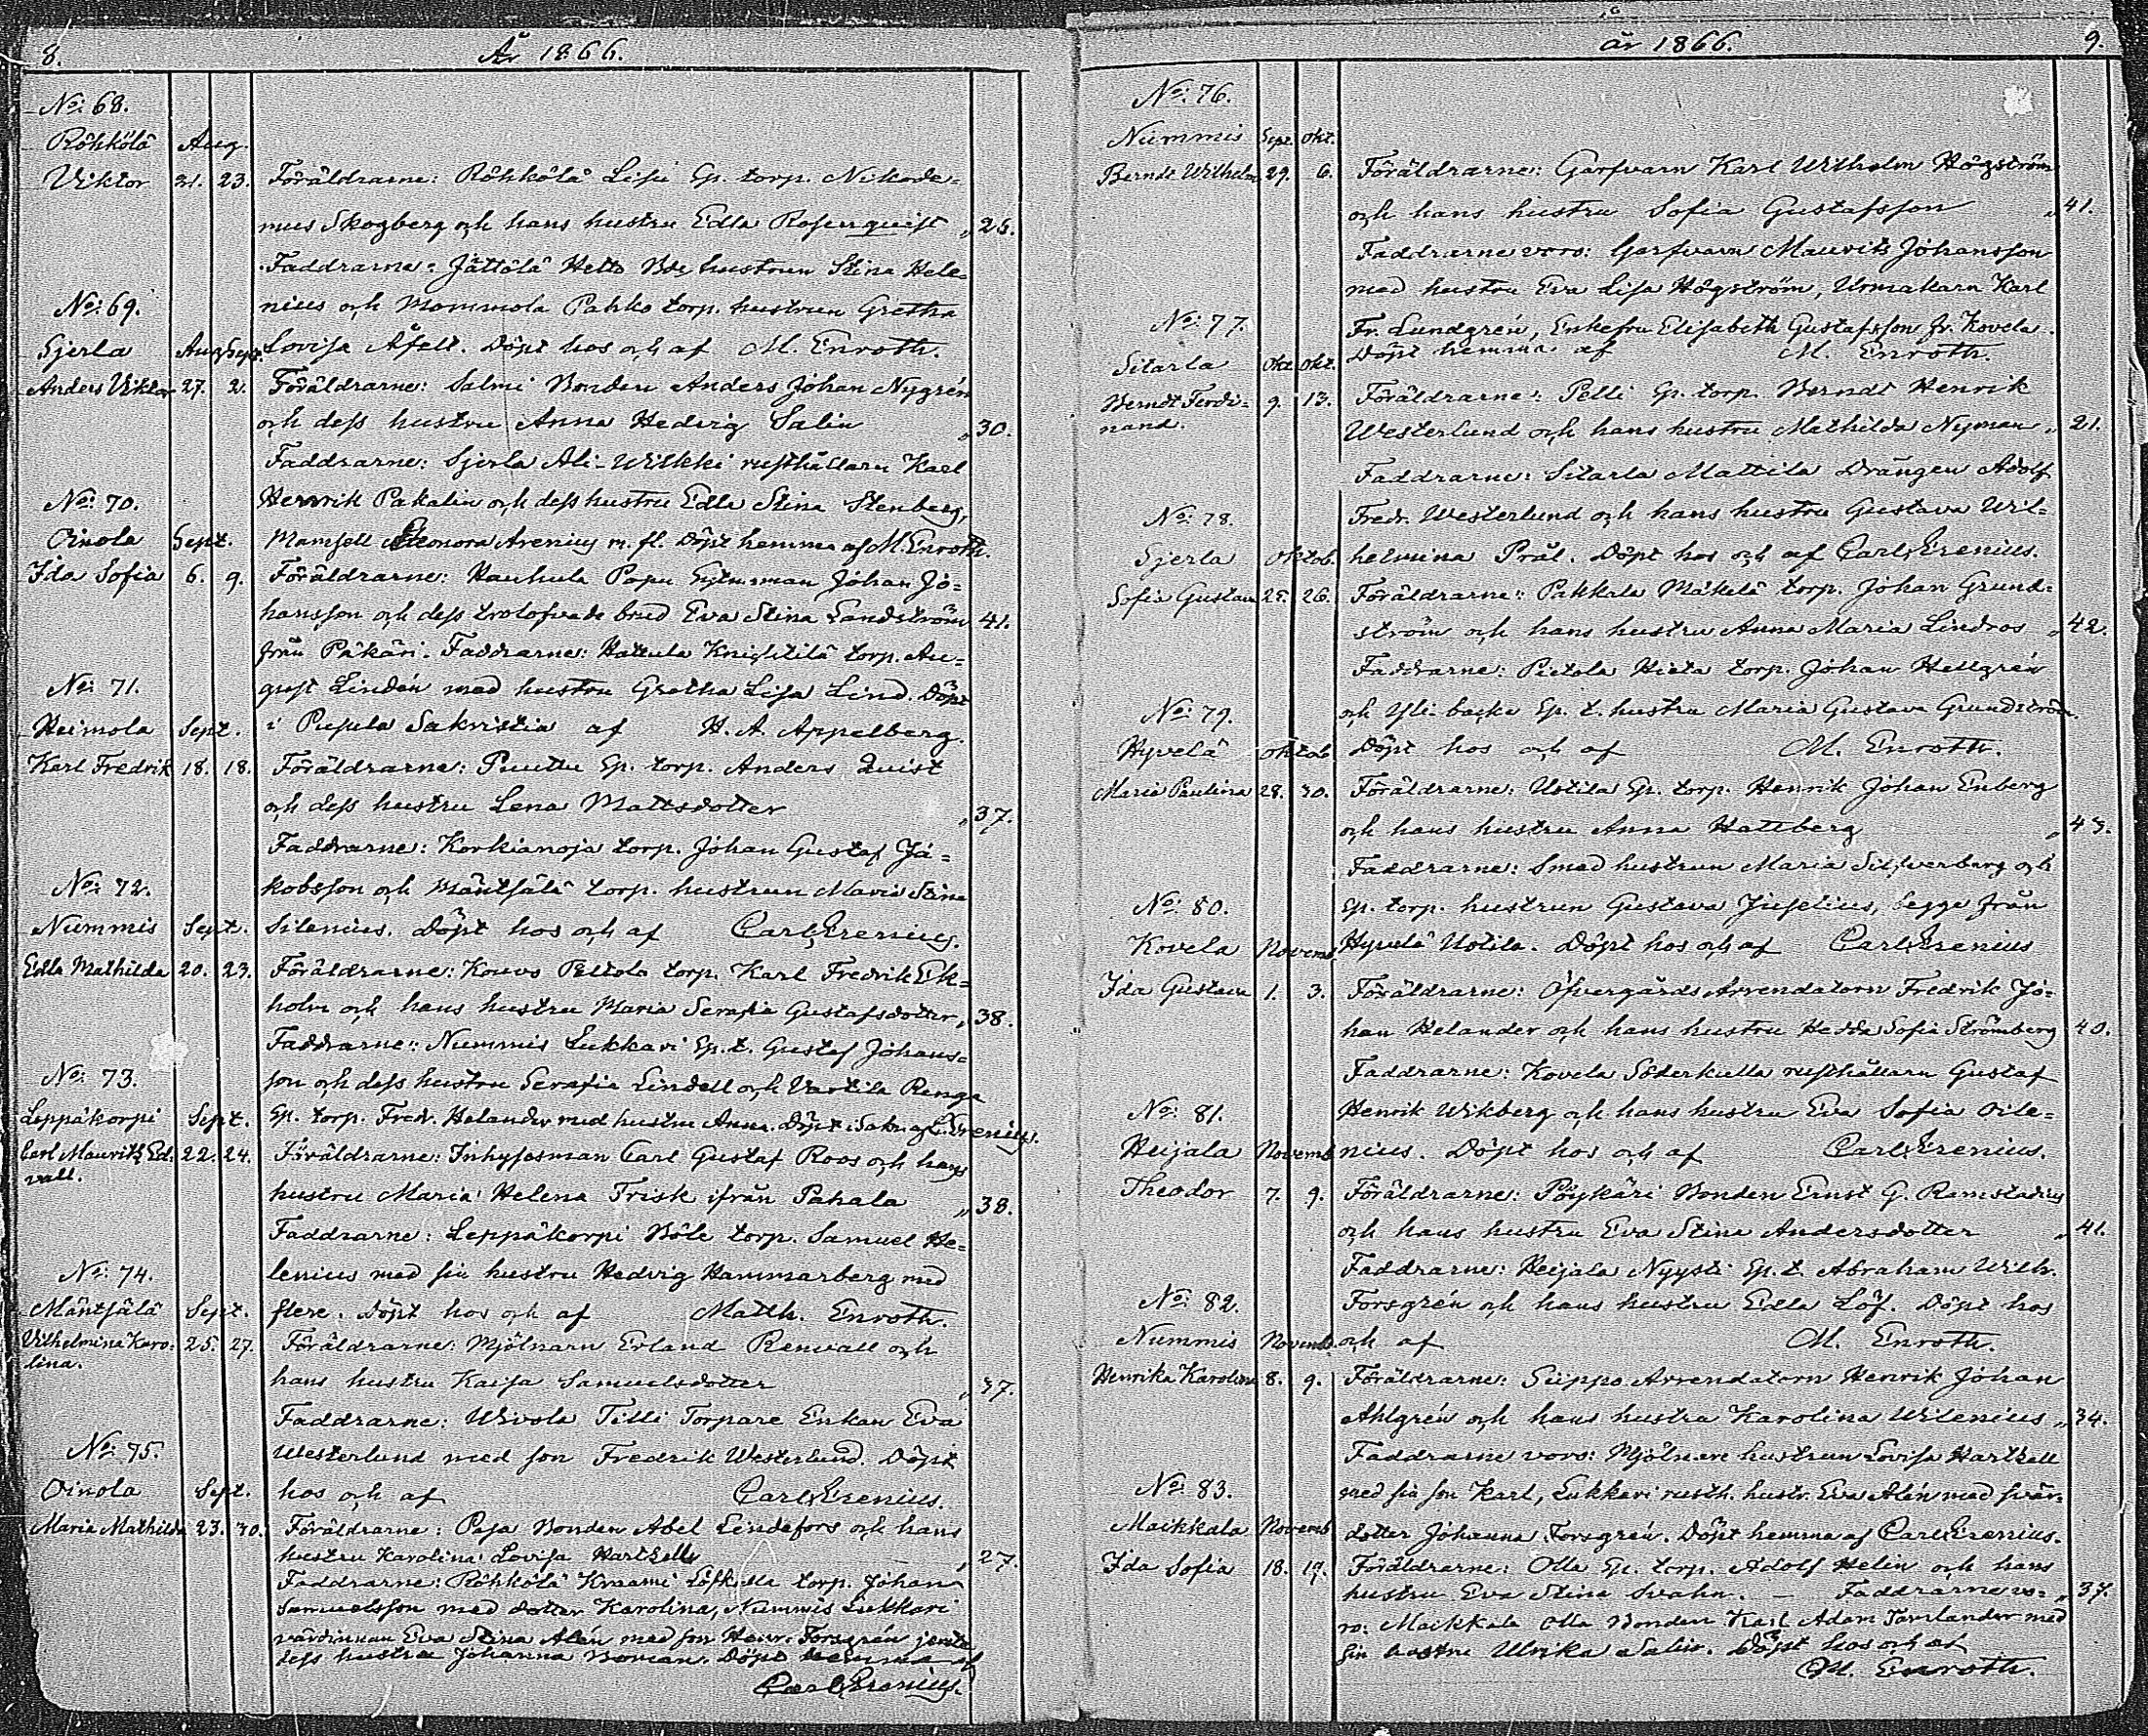 8.
År 1866.
No: 68.
Röhkölä Aug.
Viktor 21. 23. Föräldrarne: Röhkölä Lisu Ep. torp. Nikode=
mus Skogberg och hans hustru Edla Rosenqvist „ 26.
Faddrarne: Jättölä Hetto Bde hustrun Stina Hele=
No: 69.
nius och Mommola Pahko torp. hustrun Gretha
Sjerla Aug Sept. Lovisa Åfelt. Döpt hos och af M. Enroth.
Anders Viktor 27. 2. Föräldrarne: Salmi Bonden Anders Johan Nygrén
och dess hustru Anna Hedvig Salin „ 30.
Faddrarne: Sjerla Ali-Wilkki rusthållarn Karl
No: 70.
Henrik Pakalin och dess hustru Edla Stina Stenberg,
Oinola Sept. Mamsell Eleonora Arenius m. fl. Döpt hemma af M. Enroth.
Ida Sofia 6. 9. Föräldrarne: Hauhula Papu Johan Jo=
hansson och dess trolofvade brud Eva Stina Sandström 41.
från Päkäri. Faddrarne: Hattula Knihtilä torp. Au=
No: 71.
gust Lindén med hustru Gretha Lisa Lind. Döpt
Heimola Sept. i Pusula Sakristia af H. A. Appelberg.
Karl Fredrik 18. 18. Föräldrarne: Puuttu Ep. torp. Anders Quist
och dess hustru Lena Mattsdotter „ 37.
Faddrarne: Korkianoja torp. Johan Gustaf Ja=
No: 72.
kobsson och Mäntsälä torp. hustrun Maria Stina
Nummis Sept. Silenius. Döpt hos och af Carl Erenius.
Edla Mathilda 20. 23. Föräldrarne: Kouvo Peltola torp. Karl Fredrik Ek=
holm och hans hustru Maria Serafia Gustafsdotter „ 38.
Faddrarne: Nummis Lukkari Ep. t. Gustaf Johans=
No: 73.
son och dess hustru Serafia Lindell och Vartila Renga
Leppäkorpi Sept. Ep. torp. Fredr. Helander med hustru Anna. Döpt i Sakr. af C. Erenius.
Carl Mauritz Ed= 22. 24. Föräldrarne: Inhysesman Carl Gustaf Roos och hans
vall.
hustru Maria Helena Frisk ifrån Pahala „ 38.
Faddrarne: Leppäkorpi Böle torp. Samuel He=
No: 74.
lenius med sin hustru Hedvig Hammarberg med
Mäntsälä Sept. flere. Döpt hos och af Matth. Enroth.
Vilhelmina Karo= 25. 27. Föräldrarne: Mjölnarn Erland Renvall och
lina.
hans hustru Kaisa Samuelsdotter „ 37.
Faddrarne: Wivola Tilli Torpare Enkan Eva
No: 75.
Westerlund med son Fredrik Westerlund. Döpt
Oinola Sept. hos och af Carl Erenius.
Maria Mathilda 23. 30. Föräldrarne: Paja Bonden Abel Lindefors och hans
hustru Karolina Lovisa Hartzell „ 27.
Faddrarne: Röhkölä Kraami torp. Johan
Samuelsson med dotter Karolina, Nummis Lukkari
värdinnan Eva Stina Alén med son Henr. Forsgrén jemte
dess hustru Johanna Boman. Döpt hemma af
Carl Erenius.
år 1866.
9.
No: 76.
Nummis Sept. Okt.
Berndt Wilhelm 29. 6. Föräldrarne: Garfvarn Karl Wilhelm Högström
och hans hustru Sofia Gustafsson „ 41.
Faddrarne voro: Garfvarn Mauritz Johansson
med hustru Eva Lisa Högström, Urmakarn Karl
No: 77.
Fr. Lundgrén, Enkefru Elisabeth Gustafsson fr. Kovela.
Sitarla Okt. Okt. Döpt hemma af M. Enroth.
Berndt Ferdi= 9. 13. Föräldrarne: Pelli Ep. torp. Berndt Henrik
nand.
Westerlund och hans hustru Mathilda Nyman „ 21.
Faddrarne: Sitarla Mattila Drängen Adolf
No: 78.
Fredr. Westerlund och hans hustru Gustava Wil=
Sjerla Oktob. helmina Präl. Döpt hos och af Carl Erenius.
Sofia Gustava 25. 26. Föräldrarne: Pakkala Mäkelä torp. Johan Grund=
ström och hans hustru Anna Maria Lindros „ 42.
Faddrarne: Pietola Hieta torp. Johan Hellgrén
No: 79.
och Yli-backe Ep. t. hustru Maria Gustava Grundström.
Hyvelä Oktob. Döpt hos och af M. Enroth.
Maria Paulina 28. 30. Föräldrarne: Uotila Ep. torp. Henrik Johan Enberg
och hans hustru Anna Hattberg „ 43.
Faddrarne: Smed hustrun Maria Silfverberg och
No: 80.
Ep. torp. hustrun Gustava Juselius, begge från
Kovela Novemb. Hyvelä Uotila. Döpt hos och af Carl Erenius
Ida Gustava 1. 3. Föräldrarne: Öfvergårds Arrendatorn Fredrik Jo=
han Helander och hans hustru Hedda Sofia Strömberg 40.
Faddrarne: Kovela Söderkulla rusthållarn Gustaf
No: 81.
Henrik Wikberg och hans hustru Eva Sofia Oile=
Heijala Novemb. nius. Döpt hos och af Carl Erenius.
Theodor 7. 9. Föräldrarne: Pöykäri Bonden Ernst G. Ramstadius
och hans hustru Eva Stina Andersdotter „ 41.
Faddrarne: Heijala Nyysti Ep. t. Abraham Wilh.
No: 82.
Forsgrén och hans hustru Edla Löf. Döpt hos
Nummis Novemb. och af M. Enroth.
Henrika Karolina 8. 9. Föräldrarne: Seppo Arrendatorn Henrik Johan
Ahlgrén och hans hustru Karolina Wilenius „ 34.
Faddrarne voro: Mjölnare hustrun Lovisa Hartzell
No: 83.
med sin son Karl, Lukkari rusth. hustr. Eva Alén med svär=
Maikkala Novemb. dotter Johanna Forsgrén. Döpt hemma af Carl Erenius.
Ida Sofia 18. 19. Föräldrarne: Olla Ep. torp. Adolf Helin och hans
hustru Eva Stina Svahn. — Faddrarne vo= „ 37.
ro: Maikkala Olla Bonden Karl Adam Tamlander med
sin hustru Ulrika Salin. Döpt hos och af
M. Enroth.